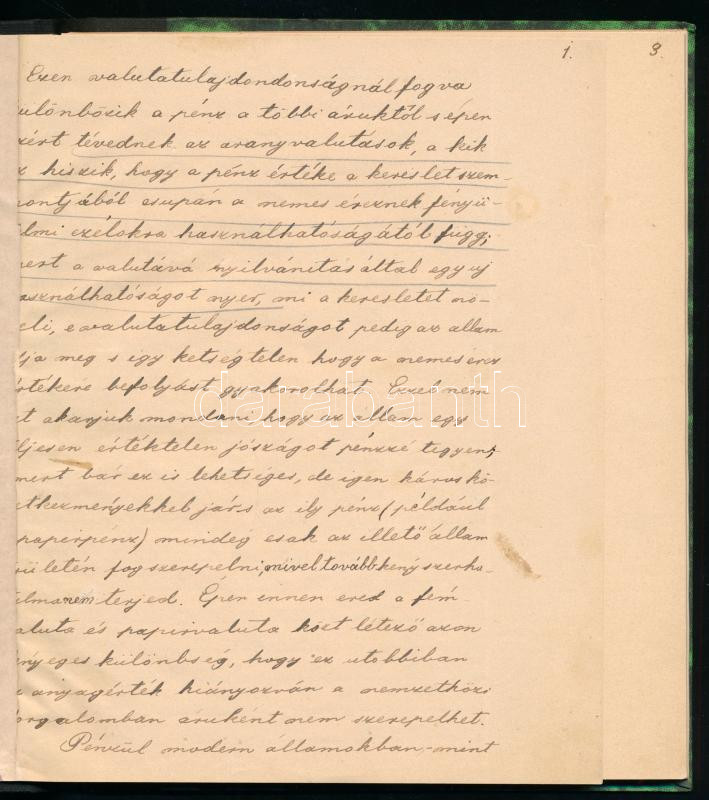 1.
3.
Ezen valutatulajdondonságnál fogva
ülönbözik a pénz a többi áruktól s épen
zért tévednek az aranyvalutások, a kik
z hiszik, hogy a pénz értéke a kereslet szem-
pontjából csupán a nemes érceknek fényü-
elmi czélokra használhatóságától függ;
mert a valutává nyilvánitás által egy uj
asználhatóságot nyer, mi a keresletet nö-
eli, e valutatulajdonságot pedig az állam
dja meg s igy kétségtelen hogy a nemesércz
értékére befolyást gyakorolhat. Ezzel nem
zt akarjuk mondani, hogy az állam egy
eljesen értéktelen jószágot pénzzé tegyen,
mert bár ez is lehetséges, de igen káros kö-
etkezményekkel jár s az ily pénz (például
papirpénz) mindég csak az illető állam
rületén fog szerepelni, mivel tovább kényszerha-
alma nem terjed. Épen innen ered a fém
aluta és papirvaluta közt létező azon
ényeges különbség, hogy ez utobbiban
z anyagérték hiányozván a nemzetközi
orgalomban áruként nem szerepelhet.
Pénzül modern államokban, - mint
darabanth